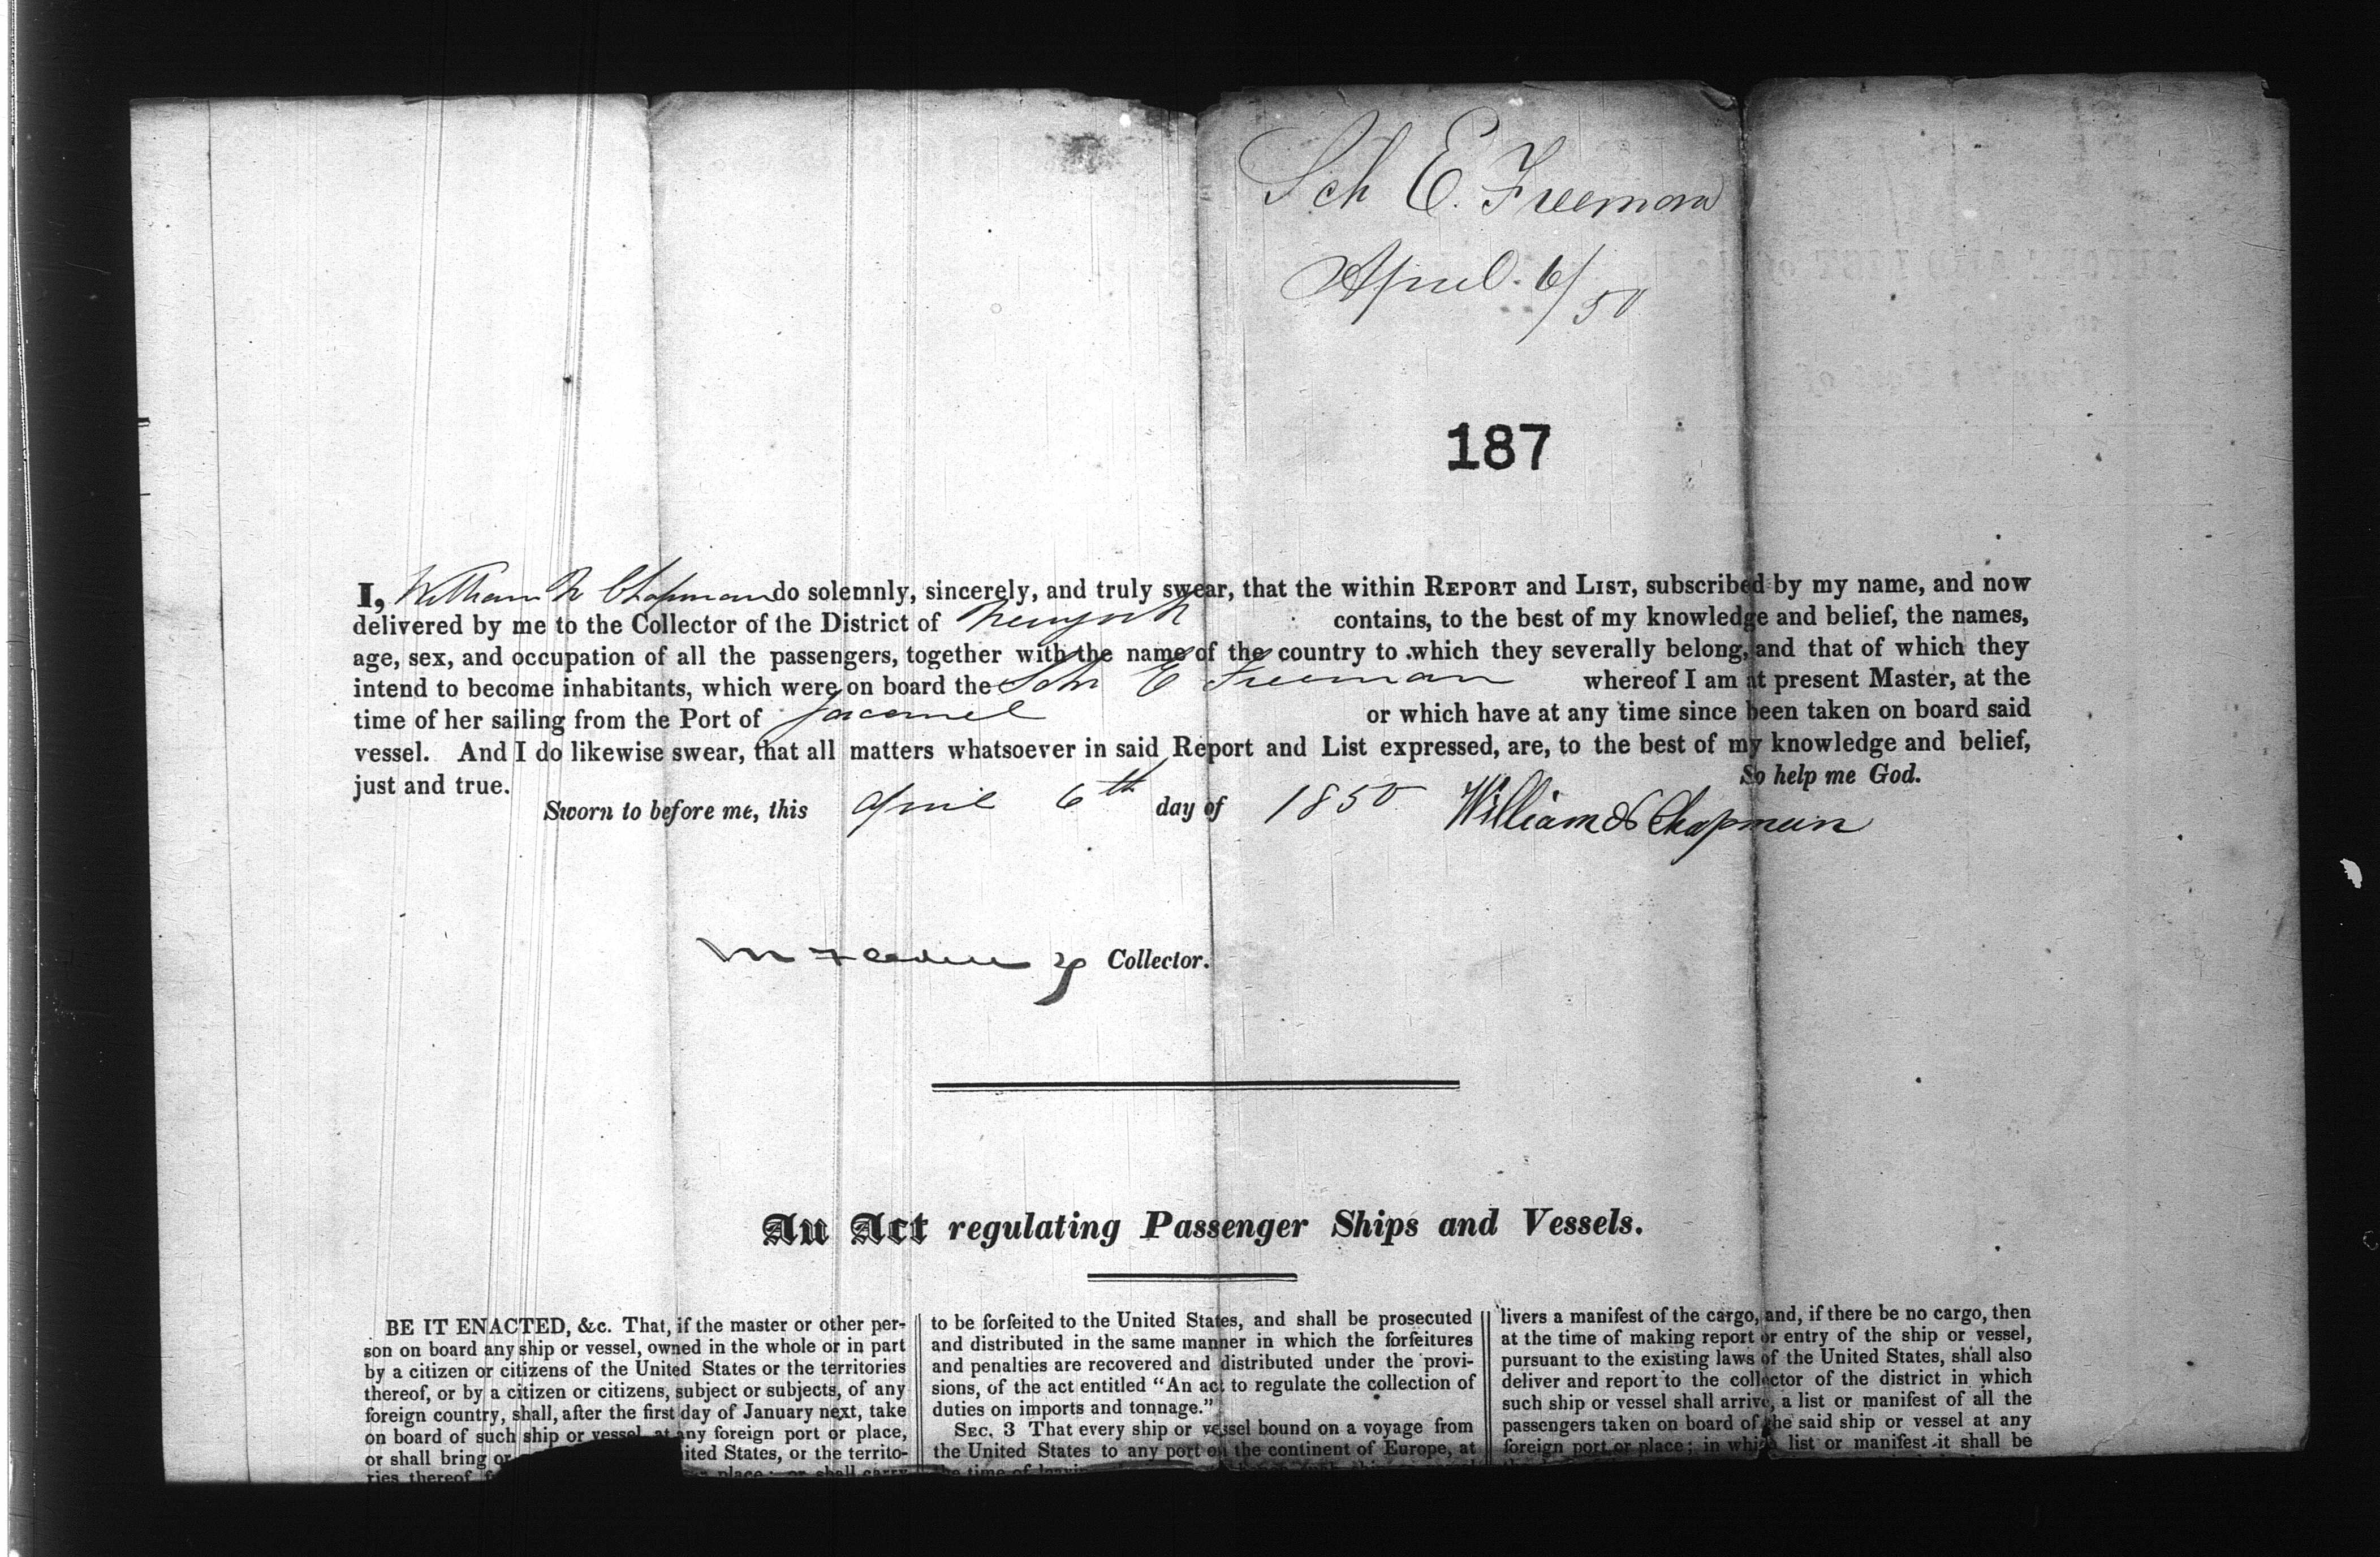 Sch E. Freeman
April 6/50
187
I, William N Chapman do solemnly, sincerely, and truly swear, that the within REPORT and LIST, subscribed by my name, and now
delivered by me to the Collector of the District of Newyork contains, to the best of my knowledge and belief, the names,
age, sex, and occupation of all the passengers, together with the name of the country to which they severally belong, and that of which they
intend to become inhabitants, which were on board the Schr E Freeman whereof I am at present Master, at the
time of her sailing from the Port of Jacamel or which have at any time since been taken on board said
vessel. And I do likewise swear, that all matters whatsoever in said Report and List expressed, are, to the best of my knowledge and belief,
just and true. So help me God.
Sworn to before me, this April 6th day of 1850 William N Chapman
Collector.
An Act regulating Passenger Ships and Vessels.
BE IT ENACTED, &c. That, if the master or other per-
son on board any ship or vessel, owned in the whole or in part
by a citizen or citizens of the United States or the territories
thereof, or by a citizen or citizens, subject or subjects, of any
foreign country, shall, after the first day of January next, take
on board of such ship or vessel, at any foreign port or place,
or shall bring or ited States, or the territo-
ries thereof place; or shall carry
to be forfeited to the United States, and shall be prosecuted
and distributed in the same manner in which the forfeitures
and penalties are recovered and distributed under the provi-
sions, of the act entitled "An act to regulate the collection of
duties on imports and tonnage."
SEC. 3 That every ship or vessel bound on a voyage from
the United States to any port on the continent of Europe, at
the time of
livers a manifest of the cargo, and, if there be no cargo, then
at the time of making report or entry of the ship or vessel,
pursuant to the existing laws of the United States, shall also
deliver and report to the collector of the district in which
such ship or vessel shall arrive, a list or manifest of all the
passengers taken on board of the said ship or vessel at any
foreign port or place; in which list or manifest it shall be